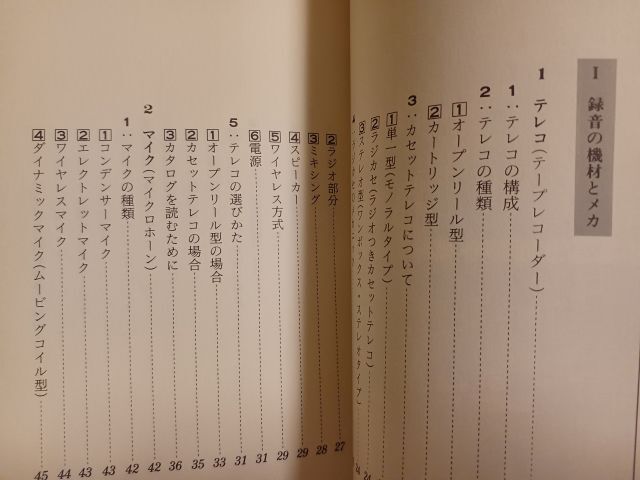 I 録音の機材とメカ
1 テレコ(テープレコーダー)
1：テレコの構成
2：テレコの種類
1オープンリール型
2カートリッジ型
3：カセットテレコについて
1単一型(モノラルタイプ)
2ラジカセ(ラジオつきカセットテレコ) 24
3ステレオ型(ワンボックス・ステレオタイプ) 24
2ラジオ部分 27
3ミキシング 28
4スピーカー 29
5ワイヤレス方式 29
6電源 31
5：テレコの選びかた 31
1オープンリール型の場合 33
2カセットテレコの場合 35
3カタログを読むために 36
2 マイク(マイクロホーン) 42
1：マイクの種類 42
1コンデンサーマイク 43
2エレクトレットマイク 43
3ワイヤレスマイク 44
4ダイナミックマイク(ムービングコイル型) 45